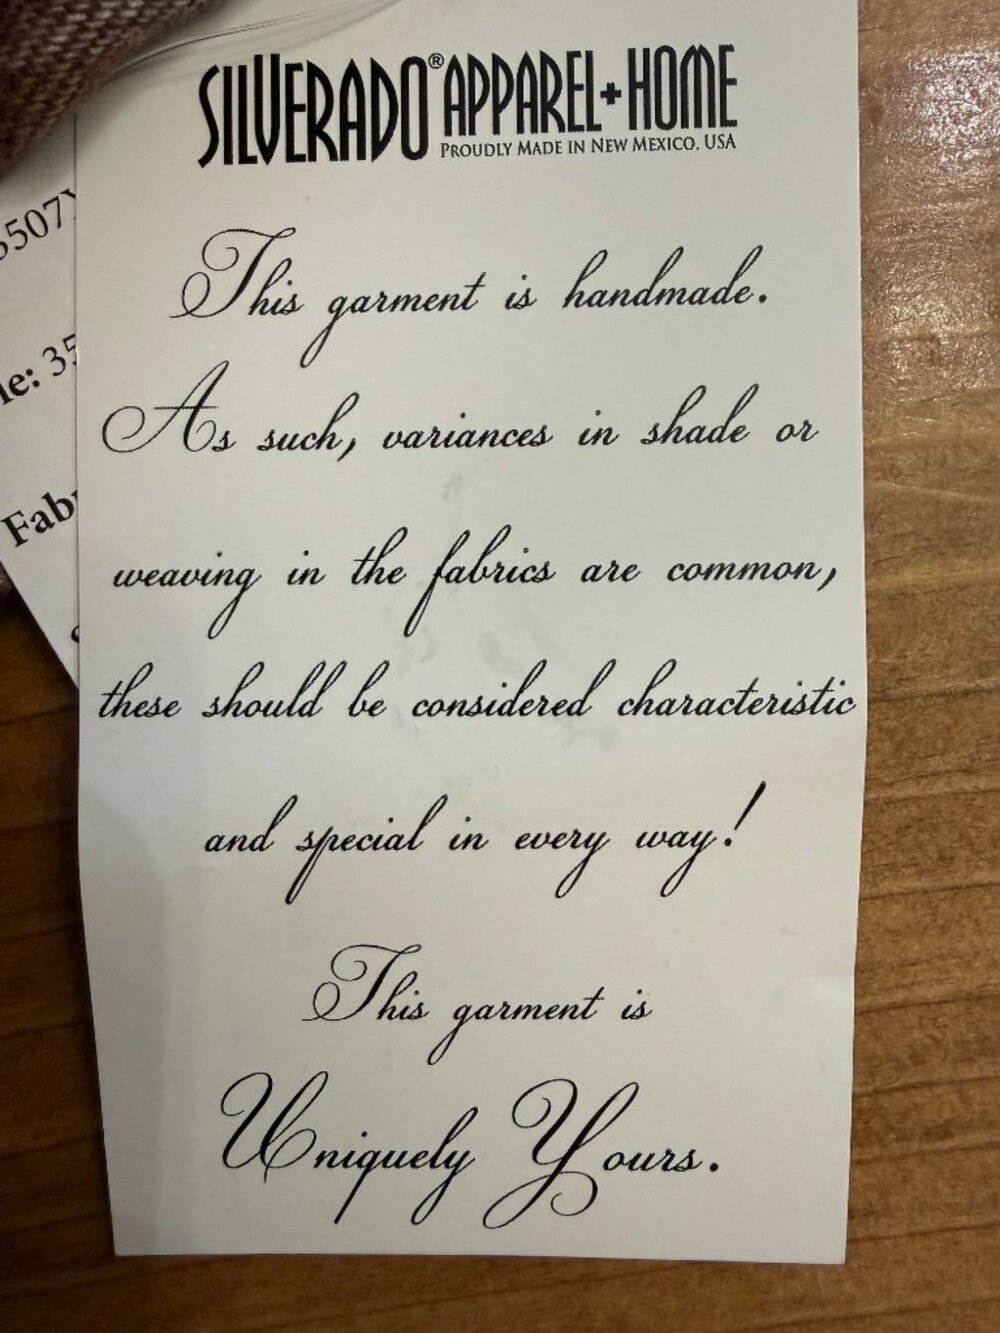 SILVERADO® APPAREL+HOME
PROUDLY MADE IN NEW MEXICO, USA
This garment is handmade.
As such, variances in shade or
weaving in the fabrics are common,
these should be considered characteristic
and special in every way!
This garment is
Uniquely Yours.
5507
le: 35
Fab